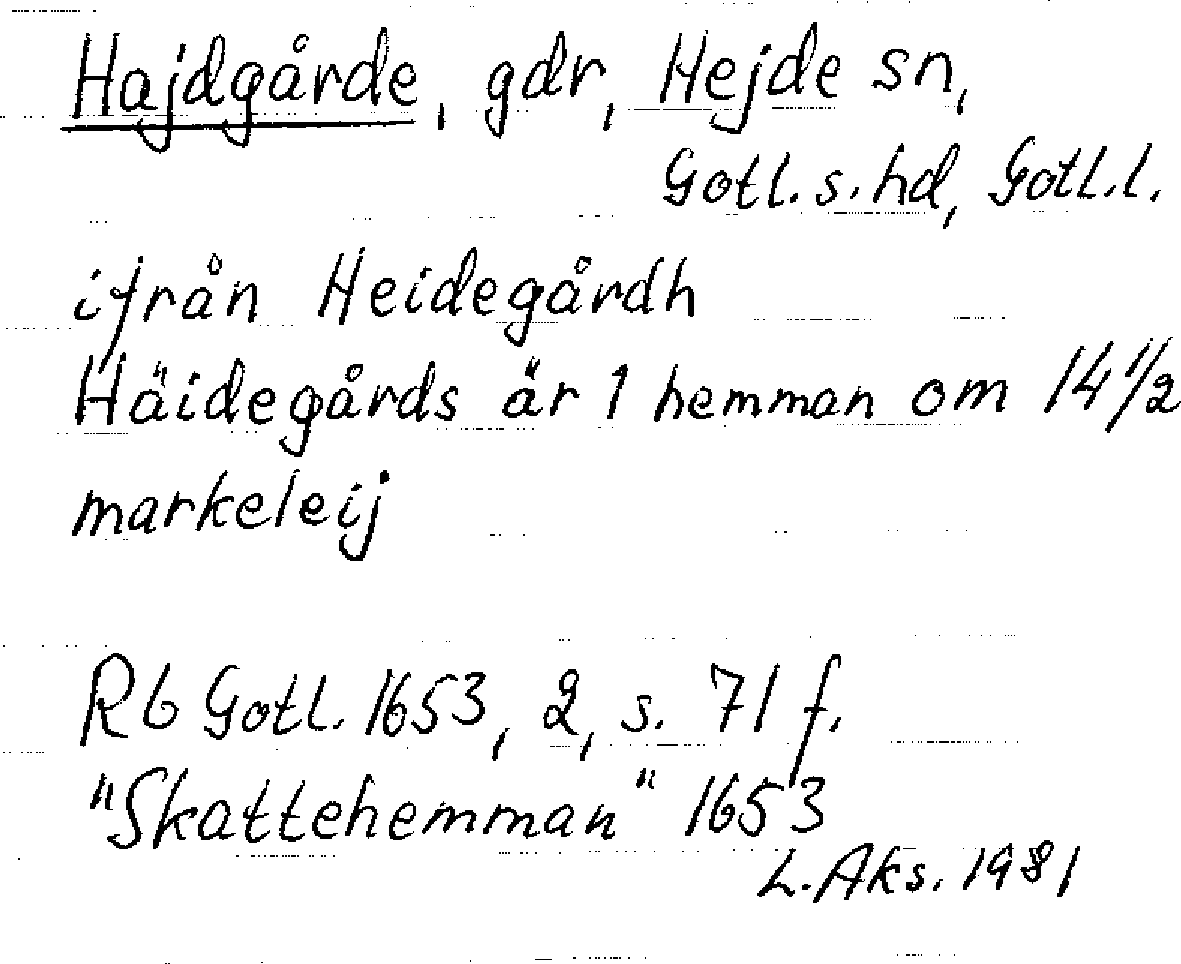 Hajdgårde, gdr, Hejde sn,
Gotl. s. hd, Gotl. l.
ifrån Heidegårdh
Häidegårds är 1 hemman om 14 1/2
markeleij
Rb Gotl. 1653, 2, s. 71 f.
"Skattehemman" 1653
L. Aks. 1981